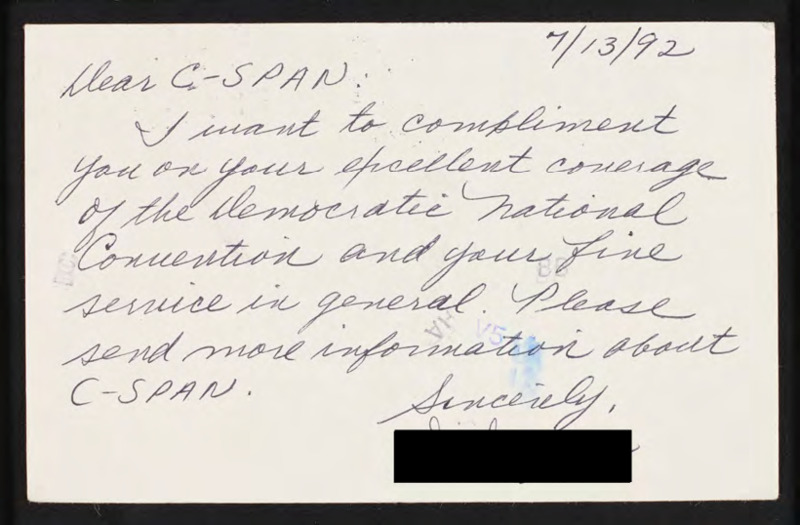 7/13/92
Dear C-SPAN:
I want to compliment
you on your excellent coverage
of the Democratic National
Convention and your fine
service in general. Please
send more information about
C-SPAN.
Sincerely,
BB
V5